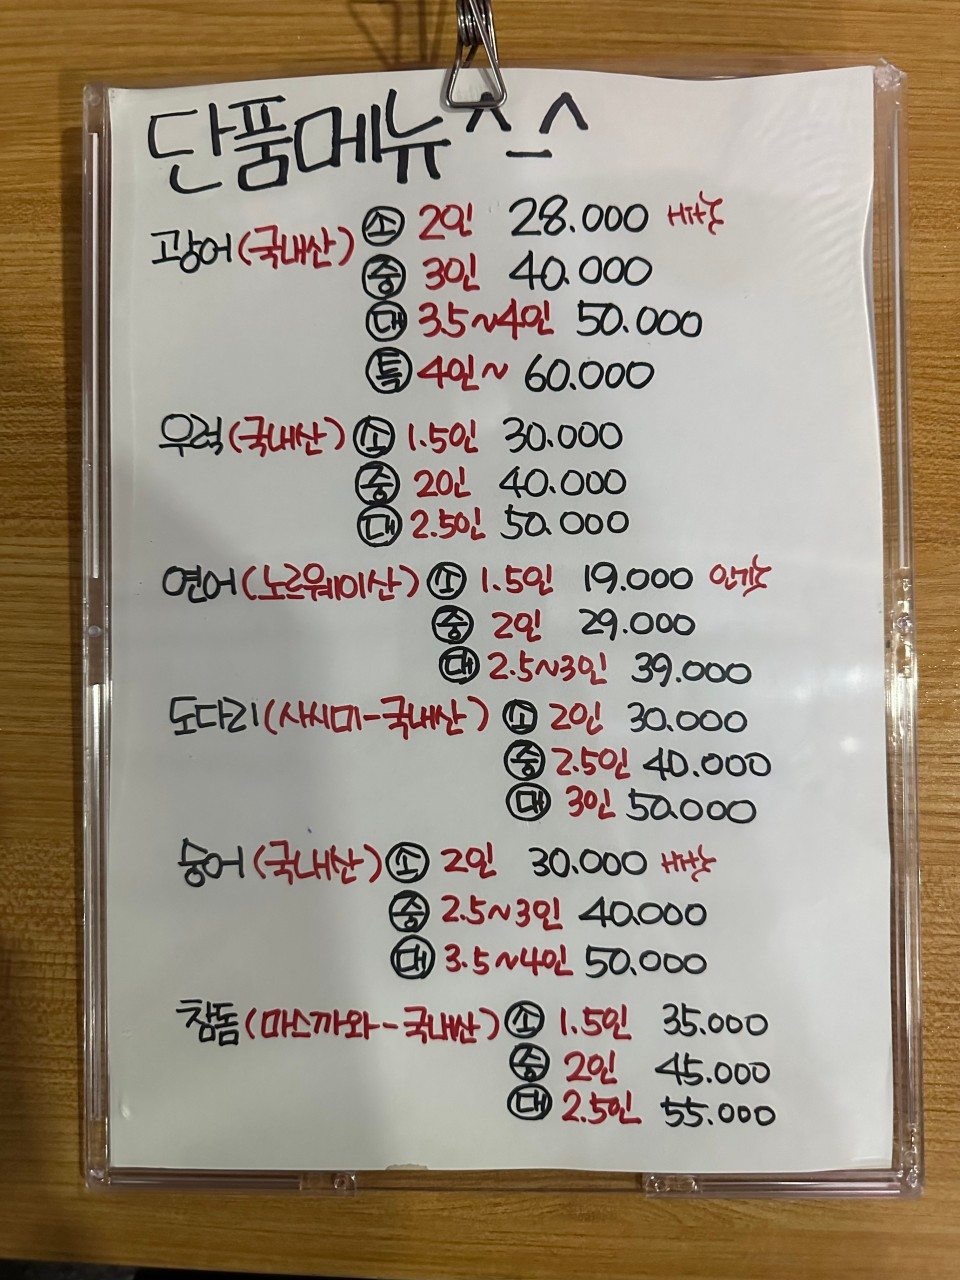 단품메뉴^_^
광어(국내산) 소 2인 28.000 Hit
중 3인 40.000
대 3.5~4인 50.000
특 4인~ 60.000
우럭(국내산) 소 1.5인 30.000
중 2인 40.000
대 2.5인 50.000
연어(노르웨이산) 소 1.5인 19.000 인기
중 2인 29.000
대 2.5~3인 39.000
도다리(사시미-국내산) 소 2인 30.000
중 2.5인 40.000
대 3인 50.000
숭어(국내산) 소 2인 30.000 Hit
중 2.5~3인 40.000
대 3.5~4인 50.000
참돔(마스까와-국내산) 소 1.5인 35.000
중 2인 45.000
대 2.5인 55.000